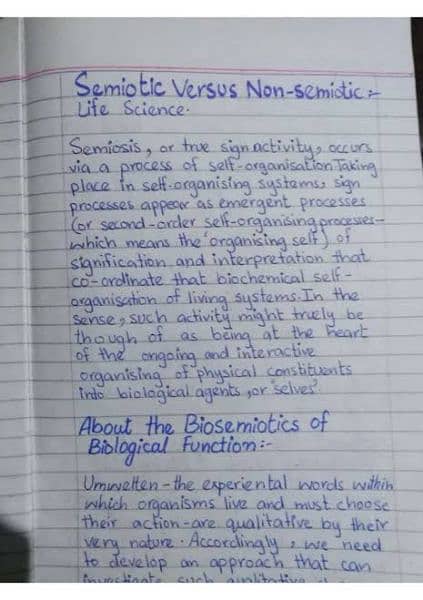 Semiotic Versus Non-semiotic:-
Life Science.
Semiosis, or true sign activity, occurs
via a process of self-organisation.Taking
place in self-organising systems, sign
processes appear as emergent processes
(or second-order self-organising processes-
which means the 'organising self') of
signification and interpretation that
co-ordinate that biochemical self-
organisation of living systems.In the
sense, such activity might truely be
though of as being at the heart
of the ongoing and interactive
organising of physical constituents
into biological agents, or 'selves'.
About the Biosemiotics of
Biological Function:-
Umwelten-the experiental words within
which organisms live and must choose
their action-are qualitative by their
very nature. Accordingly, we need
to develop an approach that can
investigate such qualitative